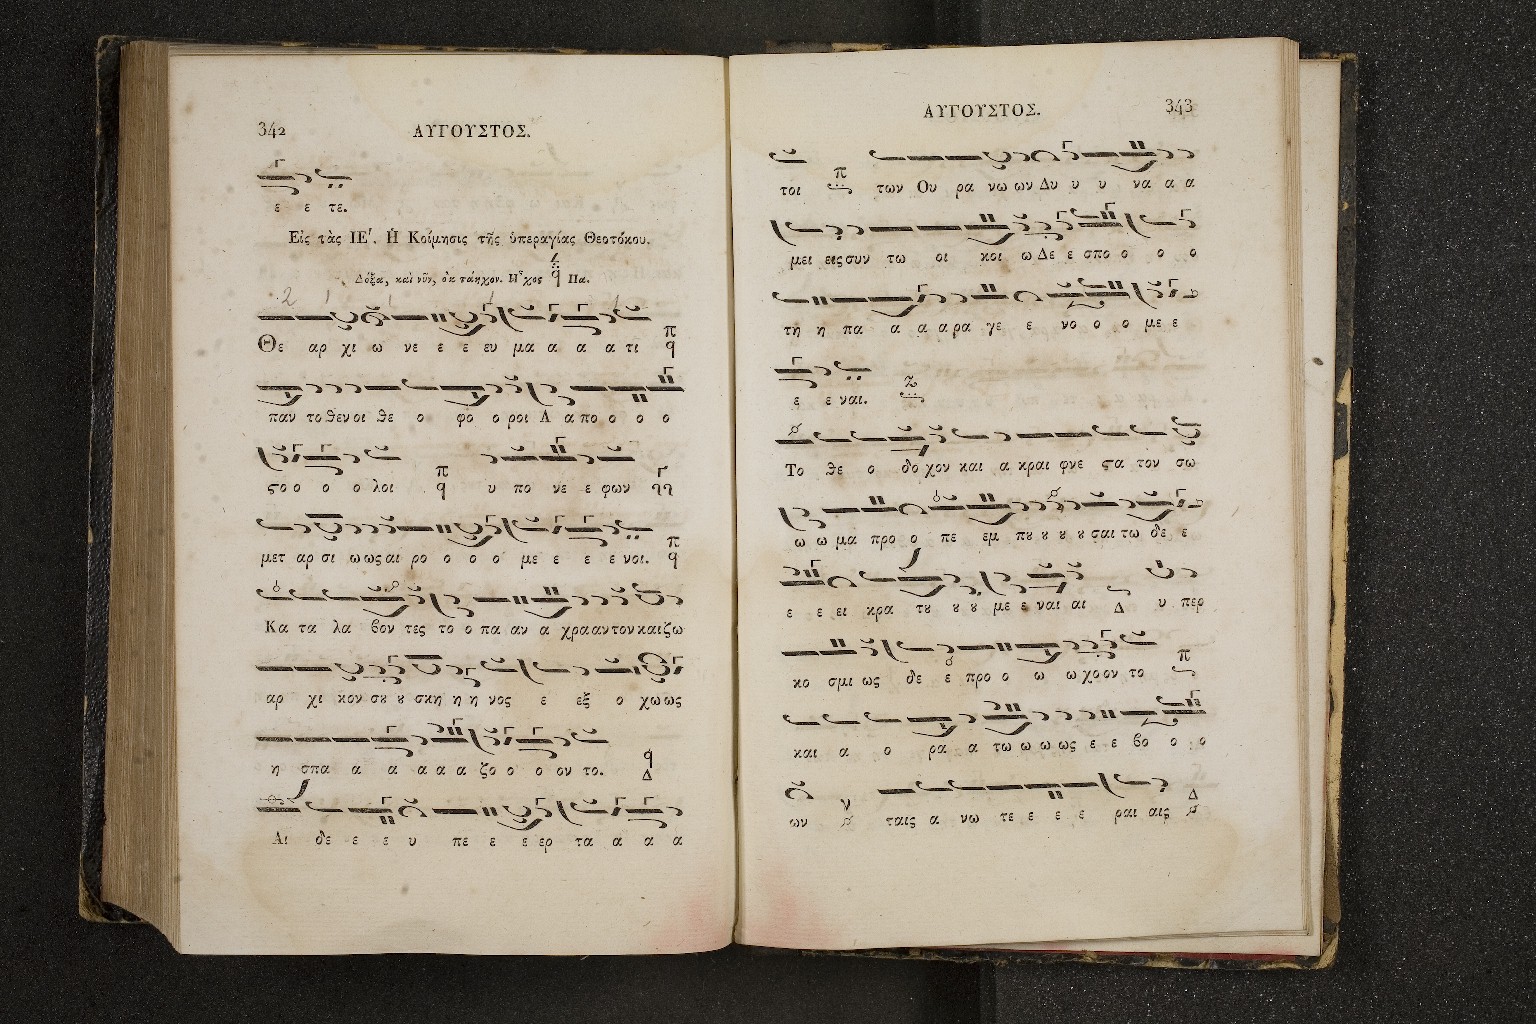 342
ΑΥΓΟΥΣΤΟΣ.
ε ε τε.
Εἰς τὰς ΙΕ′. Η Κοίμησις τῆς ὑπεραγίας Θεοτόκου.
Δόξα, καὶ νῦν, ὀκτάηχον. Ἦχος Πα.
Θε αρ χι ω νε ε ε ευ μα α α α τι
παν το θεν οι θε ο φο ο ροι Α α πο ο ο ο
ςο ο ο ο λοι υ πο νε ε φων
μετ αρ σι ω ως αι ρο ο ο ο με ε ε ε νοι.
Κα τα λα βον τες το ο πα αν α χρα αν τον και ζω
αρ χι κον σȣ ȣ σκη η η νος ε εξ ο χω ως
η σπα α α α α α ζο ο ο ον το.
Αι δε ε ε υ πε ε ε ερ τα α α α
ΑΥΓΟΥΣΤΟΣ.
343
τοι των Ου ρα νω ων Δυ υ υ να α α
μει εις συν τω οι κοι ω Δε ε σπο ο ο ο
τη η πα α α α ρα γε ε νο ο ο με ε
ε ε ναι.
Το θε ο δο χον και α κραι φνε ςα τον σω
ω ω μα προ ο πε εμ πȣ ȣ ȣ ȣ σαι τω δε ε
ε ε ει κρα τȣ ȣ ȣ με ε ναι αι Δ υ περ
κο σμι ως δε ε προ ο ω ω χο ον το
και α ο ρα α τω ω ω ως ε ε βο ο ο
ων ταις α νω τε ε ε ε ραι αις